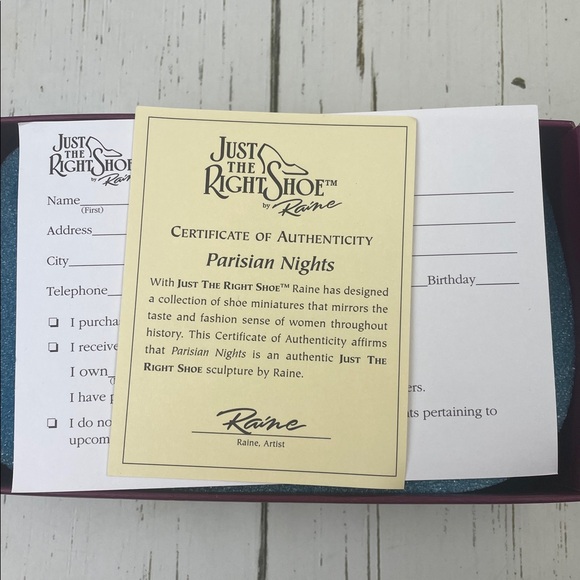 JUST
THE
RIGHT SHOE
by Raine
Name
(First)
Address
City
Telephone
Birthday
❏ I purcha
❏ I receive
I own
I have p
ers.
❏ I do no
ts pertaining to
upcom
JUST
THE
RIGHT SHOE™
by Raine
CERTIFICATE OF AUTHENTICITY
Parisian Nights
With JUST THE RIGHT SHOE™ Raine has designed
a collection of shoe miniatures that mirrors the
taste and fashion sense of women throughout
history. This Certificate of Authenticity affirms
that Parisian Nights is an authentic JUST THE
RIGHT SHOE sculpture by Raine.
Raine
Raine, Artist